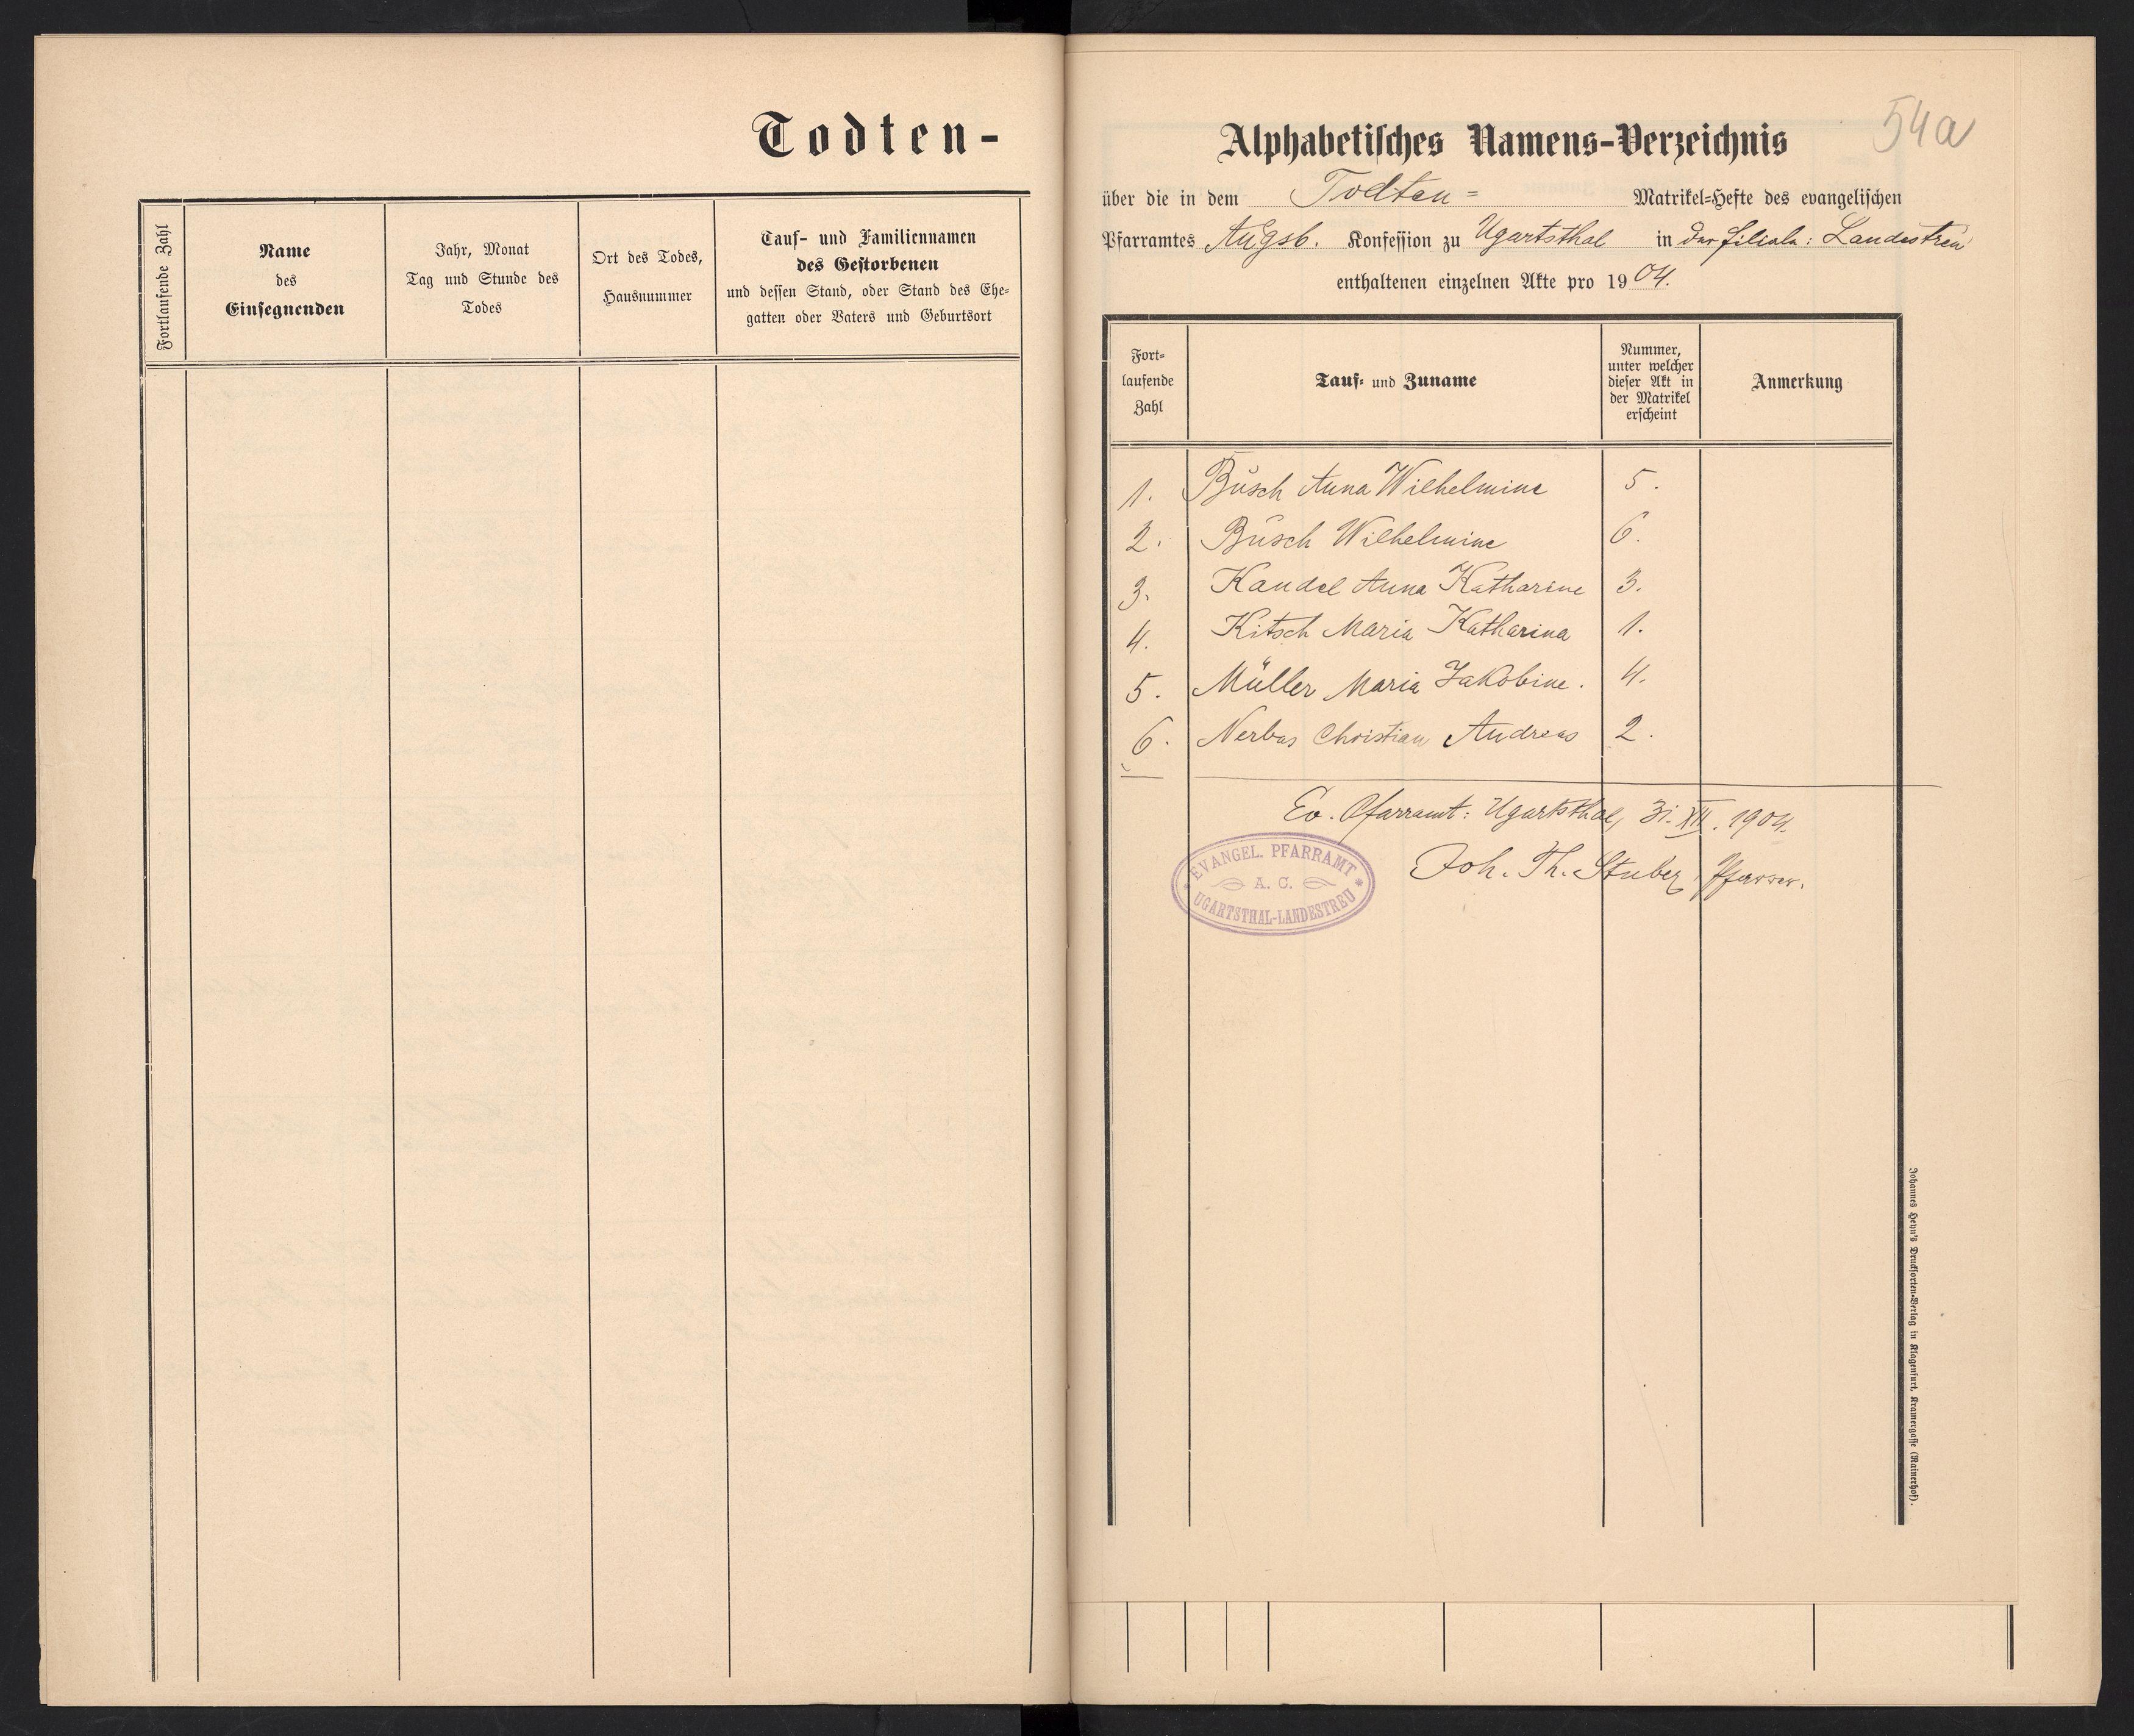 Todten-
Fortlaufende Zahl
Name
des
Einsegnenden
Jahr, Monat
Tag und Stunde des
Todes
Ort des Todes,
Hausnummer
Tauf- und Familiennamen
des Gestorbenen
und dessen Stand, oder Stand des Ehe-
gatten oder Vaters und Geburtsort
54a
Alphabetisches Namens-Verzeichnis
über die in dem Todten- Matrikel-Hefte des evangelischen
Pfarramtes Augsb. Konfession zu Ugartsthal in der Filiale: Landestreu
enthaltenen einzelnen Akte pro 1904.
Fort-
laufende
Zahl
Tauf- und Zuname
Nummer,
unter welcher
dieser Akt in
der Matrikel
erscheint
Anmerkung
1. Busch Anna Wilhelmine 5.
2. Busch Wilhelmine 6.
3. Kandel Anna Katharine 3.
4. Kitsch Maria Katharina 1.
5. Müller Maria Jakobine. 4.
6. Nerbas Christian Andreas 2.
Ev. Pfarramt: Ugartsthal, 31. XII. 1904.
Joh. Th. Stuber, Pfarrer.
EVANGEL. PFARRAMT
A. C.
UGARTSTHAL-LANDESTREU
Johannes Heyn's Drucksorten-Verlag in Klagenfurt, Kramergasse (Rainerhof).